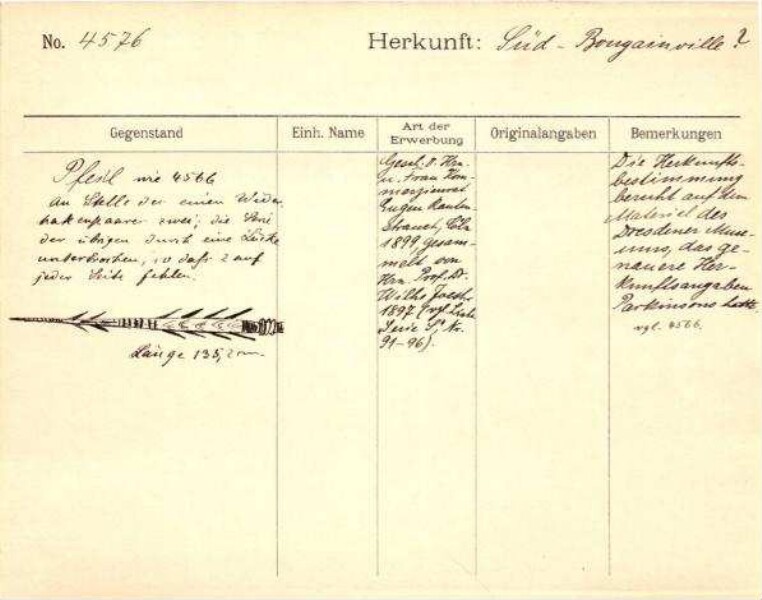 No. 4576
Herkunft: Süd-Bougainville?
Gegenstand
Einh. Name
Art der
Erwerbung
Originalangaben
Bemerkungen
Pfeil wie 4566
An Stelle der einen Wider
hakenpaare zwei; die Serie
der übrigen durch eine Lücke
unterbrochen, so dass 2 auf
jeder Seite fehlen.
Länge 135,2 cm.
Gesch. v. Hrn.
u. Frau Kom-
merzienrat
Eugen Rauten-
strauch, Cöln
1899, gesam-
melt von
Hrn. Prof. Dr.
Wilh. Joest
1897 (vgl. Liste
Serie S, Nr.
91-96).
Die Herkunfts-
bestimmung
beruht auf dem
Material des
Dresdener Muse-
ums, das ge-
nauere Her-
kunftsangaben
Parkinsons hatte.
vgl. 4566.